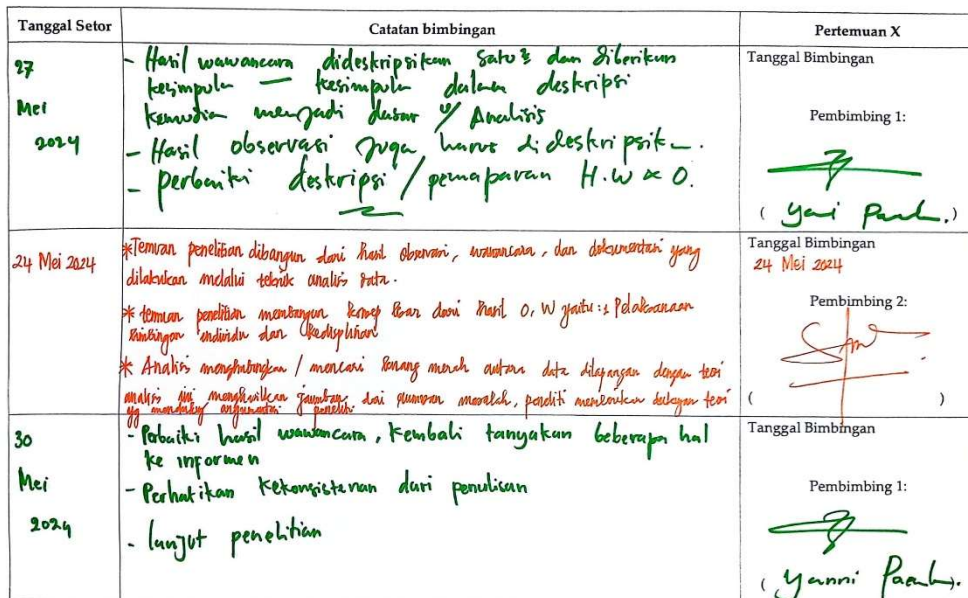 Tanggal Setor
Catatan bimbingan
Pertemuan X
27
Mei
2024
- Hasil wawancara dideskripsikan satu2 dan diberikan
kesimpulan — kesimpulan dalam deskripsi
kemudian menjadi dasar u/ Analisis
- Hasil observasi juga harus dideskripsikan.
- perbaiki deskripsi / pemaparan H.W & O.
Tanggal Bimbingan
Pembimbing 1:
( )
24 Mei 2024
*Temuan penelitian dibangun dari hasil observasi, wawancara, dan dokumentasi yang
dilakukan melalui teknik analisis data.
* temuan penelitian membangun konsep besar dari hasil O, W yaitu : Pelaksanaan
bimbingan individu dan kedisplinan
* Analisis menghubungkan / mencari benang merah antara data dilapangan dengan teori
analisis ini menghasilkan jawaban dari rumusan masalah, peneliti menemukan dukungan teori
yg mendukung argumentasi peneliti
Tanggal Bimbingan
24 Mei 2024
Pembimbing 2:
( )
30
Mei
2024
- Perbaiki hasil wawancara, kembali tanyakan beberapa hal
ke informen
- Perhatikan kekonsistenan dari penulisan
- lanjut penelitian
Tanggal Bimbingan
Pembimbing 1:
( Yanni ).